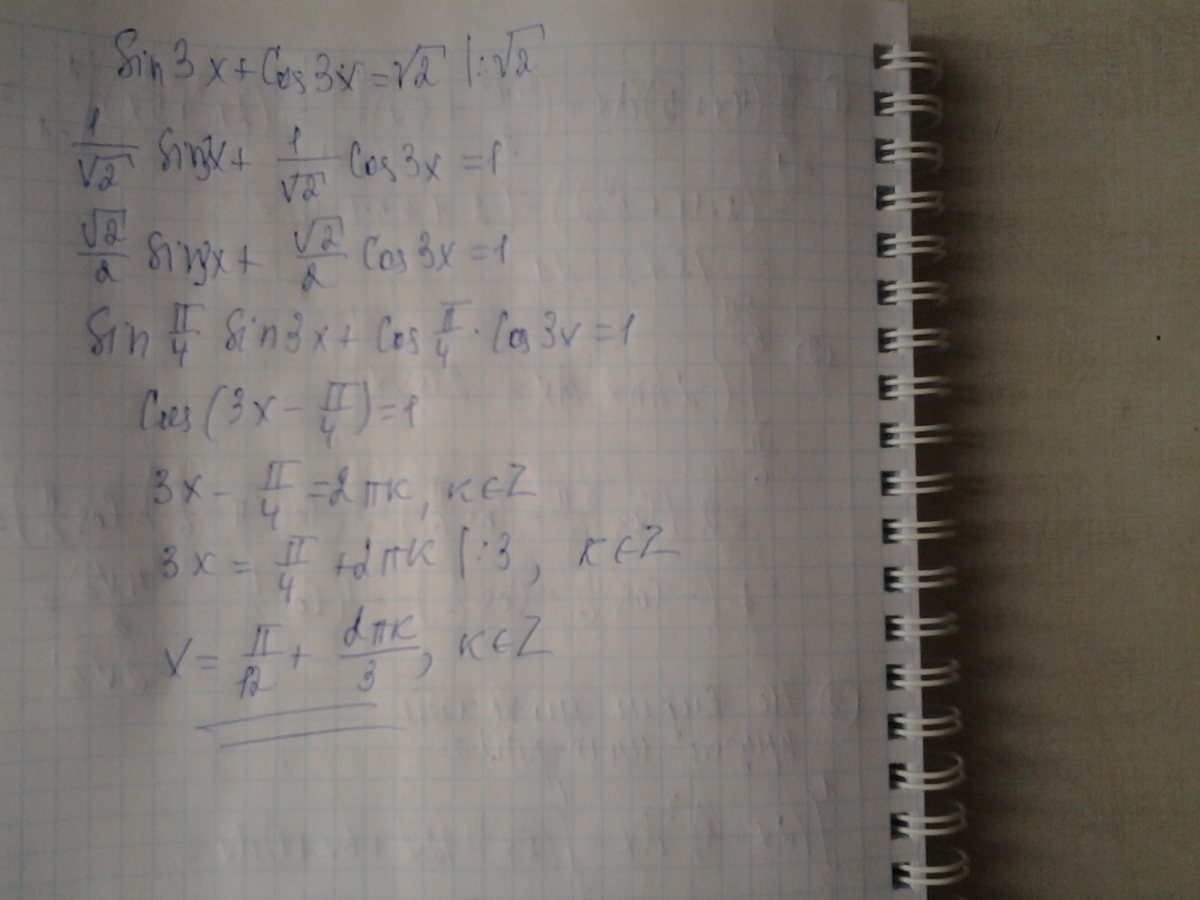 Sin3x+Cos3x=√2 |:√2
1/√2 Sin3x+ 1/√2 Cos3x=1
√2/2 Sin3x+ √2/2 Cos3x=1
Sin π/4 Sin3x+ Cos π/4 · Cos3x=1
Cos(3x- π/4)=1
3x- π/4 =2πк, к∈Z
3x= π/4 +2πк |:3, к∈Z
x= π/12 + 2πк/3, к∈Z